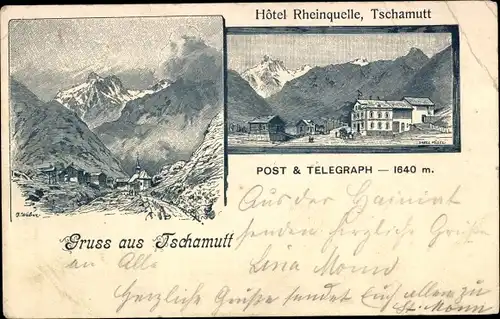 Hôtel Rheinquelle, Tschamutt
POST & TELEGRAPH — 1640 m.
Gruss aus Tschamutt
Aus der Heimat
senden herzliche Grüße
an Alle Lina Monn
Herzliche Grüße sendet Euch allen zu